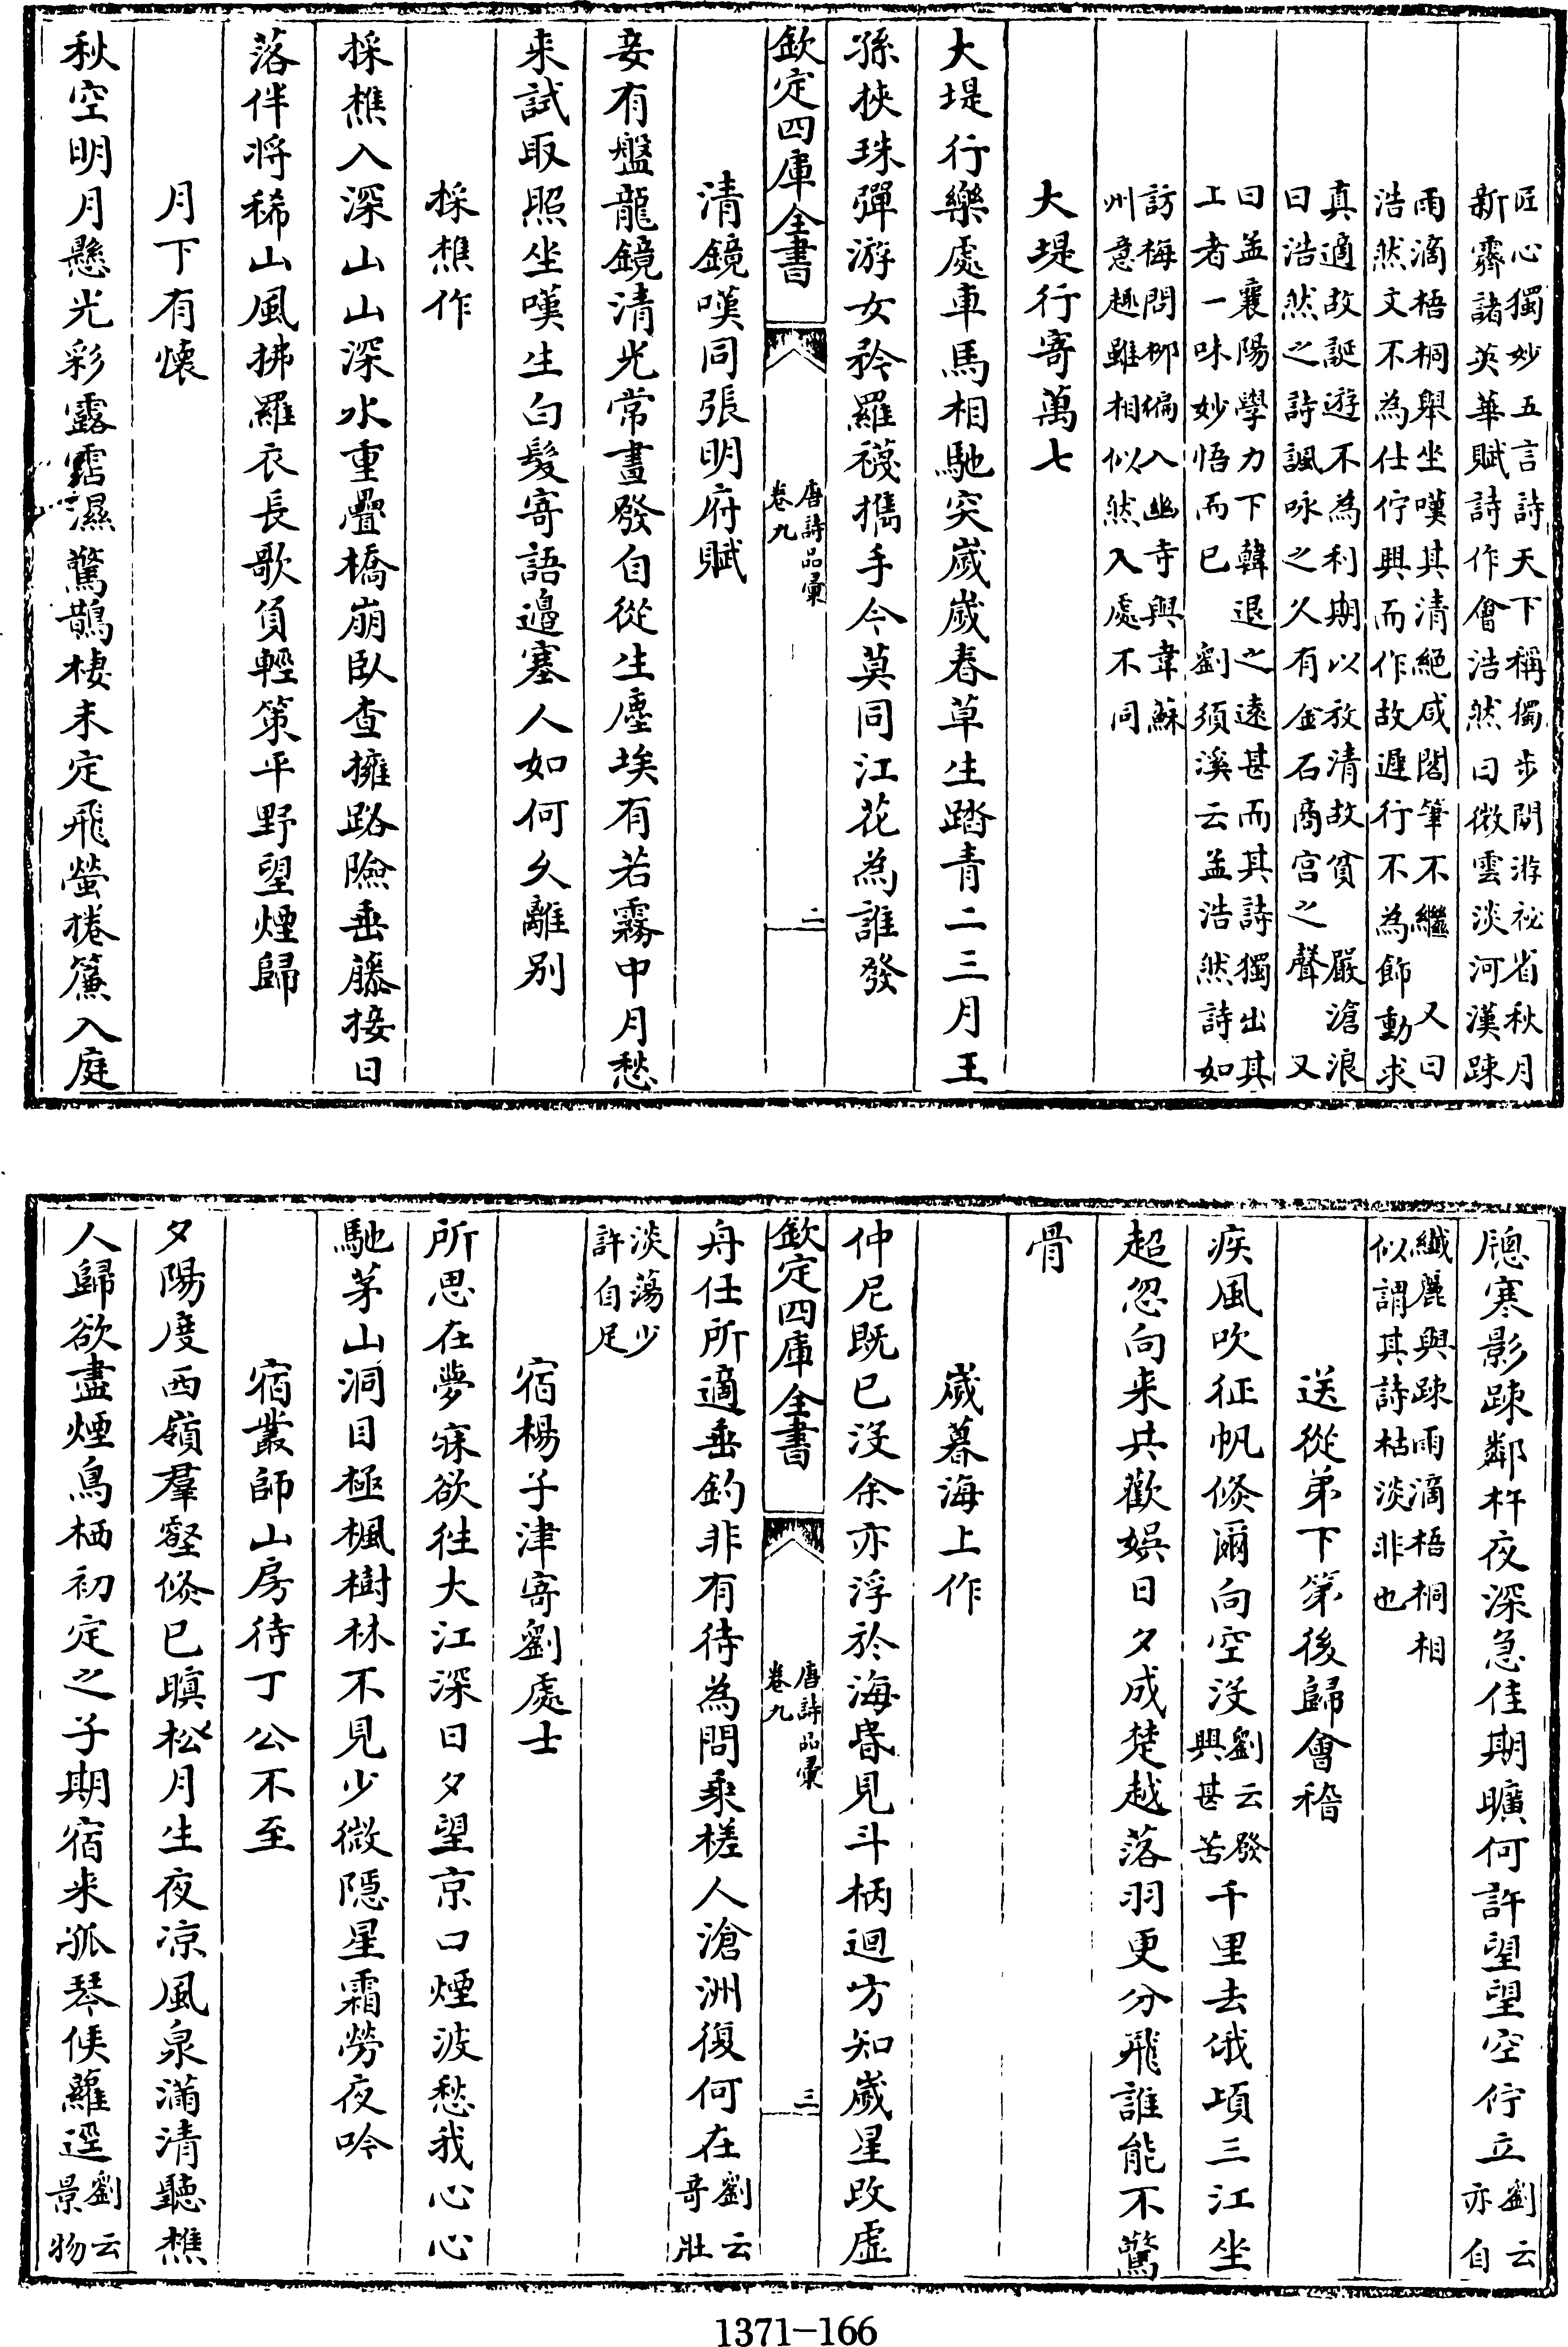 匠心獨妙五言詩天下稱獨步閒游祕省秋月
新霽諸英華賦詩作會浩然曰微雲淡河漢疎
雨滴梧桐舉坐嘆其清絶咸閣筆不繼　又曰
浩然文不為仕佇興而作故遲行不為飾動求
真適故誕遊不為利期以放清故貧　嚴滄浪
曰浩然之詩諷咏之久有金石商宮之聲　又
曰孟襄陽學力下韓退之遠甚而其詩獨出其
上者一味妙悟而已　劉須溪云孟浩然詩如
訪梅問柳偏入幽寺與韋蘇
州意趣雖相似然入處不同
大堤行寄萬七
大堤行樂處車馬相馳突歲歲春草生踏青二三月王
孫挾珠彈游女矜羅襪攜手今莫同江花為誰發
欽定四庫全書
唐詩品彙
卷九
二
清鏡嘆同張明府賦
妾有盤龍鏡清光常晝發自從生塵埃有若霧中月愁
来試取照坐嘆生白髮寄語邉塞人如何久離别
採樵作
採樵入深山山深水重疊橋崩臥查擁路險垂藤接日
落伴將稀山風拂羅衣長歌負輕策平野望煙歸
月下有懷
秋空明月懸光彩露霑濕驚鵲棲未定飛螢捲簾入庭
牕寒影疎鄰杵夜深急佳期曠何許望望空佇立劉云亦自
纖麗與疎雨滴梧桐相
似謂其詩枯淡非也
送從弟下第後歸會稽
疾風吹征帆倏爾向空没劉云發興甚苦千里去俄頃三江坐
超忽向来共歡娛日夕成楚越落羽更分飛誰能不驚
骨
歲暮海上作
仲尼既已没余亦浮於海昏見斗柄迴方知歲星改虚
欽定四庫全書
唐詩品彙
卷九
三
舟任所適垂釣非有待為問乘槎人滄洲復何在劉云奇壯
淡蕩少
許自足
宿楊子津寄劉處士
所思在夢寐欲往大江深日夕望京口煙波愁我心心
馳茅山洞目極楓樹林不見少微隱星霜勞夜吟
宿叢師山房待丁公不至
夕陽度西嶺羣壑倏已暝松月生夜凉風泉滿清聽樵
人歸欲盡煙鳥栖初定之子期宿来孤琴候蘿逕劉云景物
1371-166